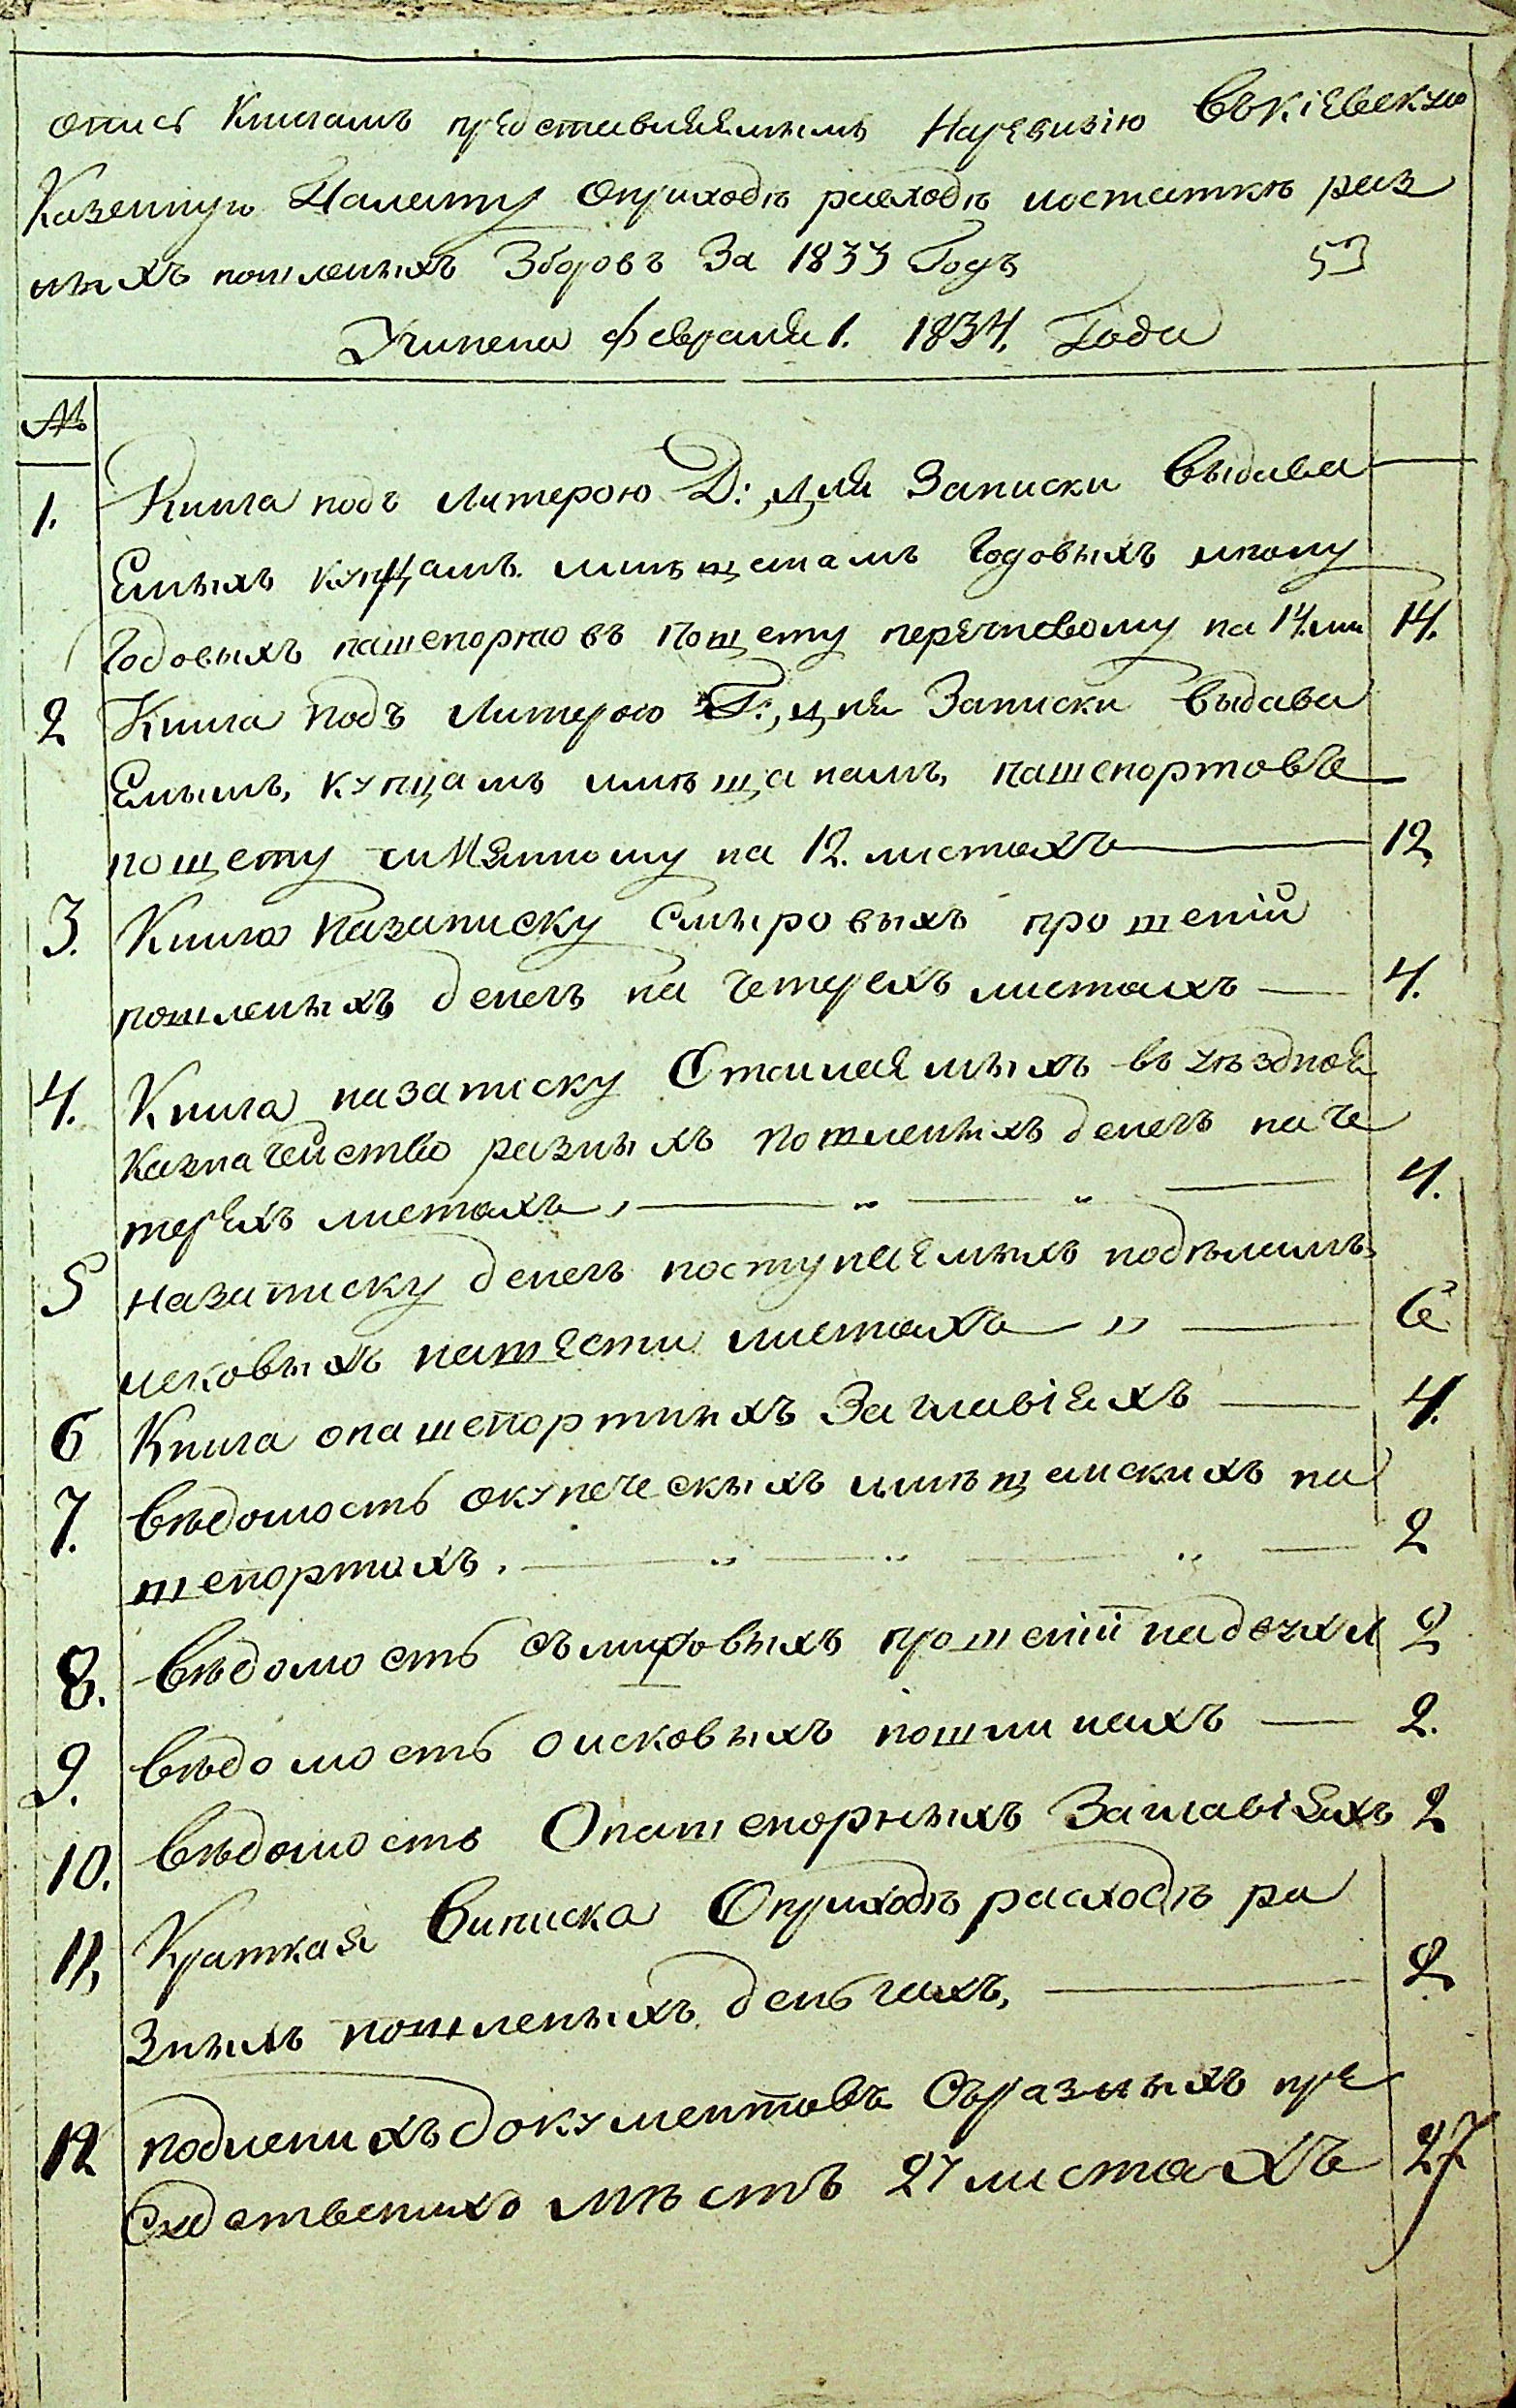 опись Книгамъ представляемымъ Наревизію Въкіевскую
Казенную Палату Оприходѣ расходѣ иостаткѣ раз
ныхъ пошленыхъ Зборовъ За 1833 Годъ 53
Учинена февраля 1. 1834. Года
№
1. Книга подъ литерою Д: для Записки Выдава
Емыхъ купцамъ имѣщанамъ Годовыхъ иполу
Годовыхъ пашепортовъ пощету перечневому на 14.ли 14.
2 Книга подъ Литерою для Записки Выдава
Емымъ, купцамъ имѣщанамъ, пашепортовъ
пощету имянному на 12. листахъ 12
3. Книга Назаписку Смыровыхъ прошеній
пошленыхъ денегъ на Четерехъ листахъ 4.
4. Книга назаписку Отсилаемыхъ въ уѣздное
казначейство разныхъ пошленыхъ денегъ на че
терехъ листахъ, 4.
5 Назаписку денегъ поступаемыхъ подѣламъ
исковыхъ нашести листахъ 6
6 Книга опашепортныхъ Заглавіяхъ 4.
7. Вѣдомость окупеческыхъ имѣщанскихъ па
шепортахъ. 2
8. Вѣдомость съмировыхъ прошеній надвухл 2
9. Вѣдомость оисковыхъ пошлинахъ 2.
10. Вѣдомость Опашепорныхъ Заглавіяхъ 2
11, Краткая Виписка Оприходѣ расходѣ ра
Зныхъ пошленыхъ деньгахъ, 2
12 подленихъ документовъ Съразныхъ при
Судственихъ мѣстъ 27 листахъ 27